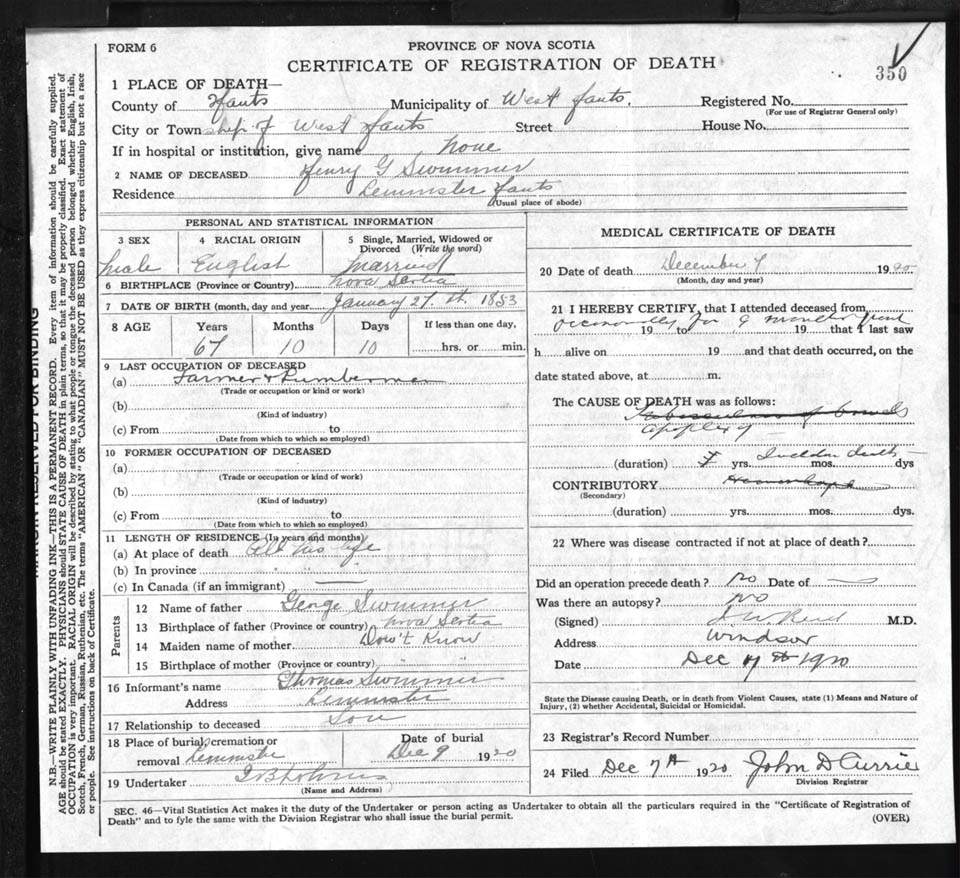 FORM 6
PROVINCE OF NOVA SCOTIA
CERTIFICATE OF REGISTRATION OF DEATH
350
1 PLACE OF DEATH—
County of Hants Municipality of West Hants. Registered No.
(For use of Registrar General only)
City or Town ship of West Hants Street House No.
If in hospital or institution, give name None
2 NAME OF DECEASED Henry G Swimmer
Residence Leminster Hants
(Usual place of abode)
PERSONAL AND STATISTICAL INFORMATION
3 SEX 4 RACIAL ORIGIN 5 Single, Married, Widowed or Divorced (Write the word)
Male English Married
6 BIRTHPLACE (Province or Country) Nova Scotia
7 DATE OF BIRTH (month, day and year) January 27 th. 1853
8 AGE Years Months Days If less than one day,
67 10 10 hrs. or min.
9 LAST OCCUPATION OF DECEASED
(a) Farmer & Lumberman
(Trade or occupation or kind or work)
(b)
(Kind of industry)
(c) From to
(Date from which to which so employed)
10 FORMER OCCUPATION OF DECEASED
(a)
(Trade or occupation or kind of work)
(b)
(Kind of industry)
(c) From to
(Date from which to which so employed)
11 LENGTH OF RESIDENCE (In years and months)
(a) At place of death All his life
(b) In province " "
(c) In Canada (if an immigrant)
Parents
12 Name of father George Swimmer
13 Birthplace of father (Province or country) Nova Scotia
14 Maiden name of mother Don't Know
15 Birthplace of mother (Province or country) " "
16 Informant's name Thomas Swimmer
Address Leminster
17 Relationship to deceased Son
18 Place of burial, cremation or removal Leminster Date of burial Dec 9 1920
19 Undertaker
(Name and Address)
MEDICAL CERTIFICATE OF DEATH
20 Date of death December 7 1920
(Month, day and year)
21 I HEREBY CERTIFY, that I attended deceased from
occasionally for 9 months 19 to 19 that I last saw
h alive on 19 and that death occurred, on the
date stated above, at m.
The CAUSE OF DEATH was as follows:
of bowels
Apoplexy
(duration) yrs. Sudden death mos. dys
CONTRIBUTORY Hemorrhage
(Secondary)
(duration) yrs. mos. dys.
22 Where was disease contracted if not at place of death?
Did an operation precede death? no Date of
Was there an autopsy? no
(Signed) J. W. Reid M.D.
Address Windsor
Date Dec 7 th 1920
State the Disease causing Death, or in death from Violent Causes, state (1) Means and Nature of Injury, (2) whether Accidental, Suicidal or Homicidal.
23 Registrar's Record Number
24 Filed Dec 7th 1920 John D Currie
Division Registrar
SEC. 46—Vital Statistics Act makes it the duty of the Undertaker or person acting as Undertaker to obtain all the particulars required in the "Certificate of Registration of
Death" and to fyle the same with the Division Registrar who shall issue the burial permit.
(OVER)
MARGIN RESERVED FOR BINDING
N.B.—WRITE PLAINLY WITH UNFADING INK—THIS IS A PERMANENT RECORD. Every item of information should be carefully supplied.
AGE should be stated EXACTLY. PHYSICIANS should STATE CAUSE OF DEATH in plain terms, so that it may be properly classified. Exact statement of
OCCUPATION is very important. RACIAL ORIGIN will be described by stating to what people or tongue the deceased person belonged, whether English, Irish,
Scotch, French, German, Russian, Ruthenian, etc. The terms "AMERICAN" OR "CANADIAN" MUST NOT BE USED as they express citizenship but not a race
or people. See instructions on back of Certificate.